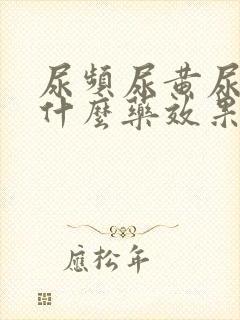 尿頻尿黄尿
什麼藥效果
應松年